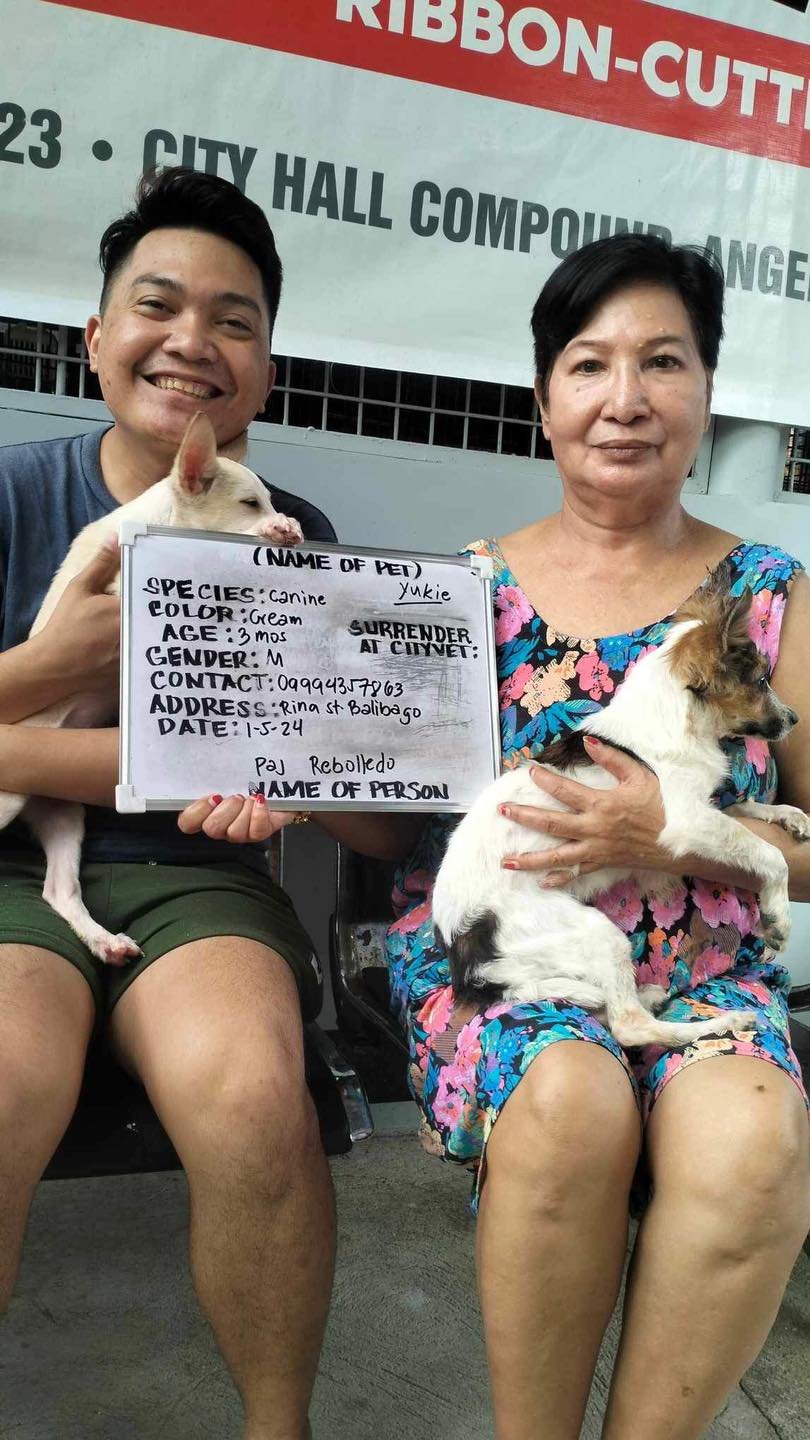 RIBBON-CUTTI
23 • CITY HALL COMPOUND, ANGE
(NAME OF PET)
SPECIES: Canine Yukie
COLOR: Cream
AGE: 3 mos SURRENDER
AT CITYVET:
GENDER: M
CONTACT: 09994357863
ADDRESS: Rina st Balibago
DATE: 1-5-24
Paj Rebolledo
NAME OF PERSON